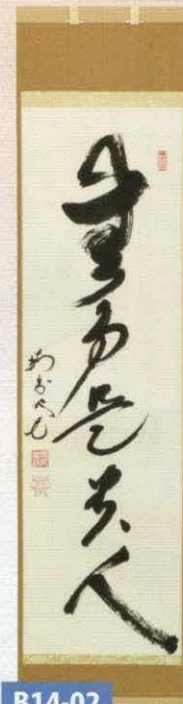 無事是貴人
B14-02